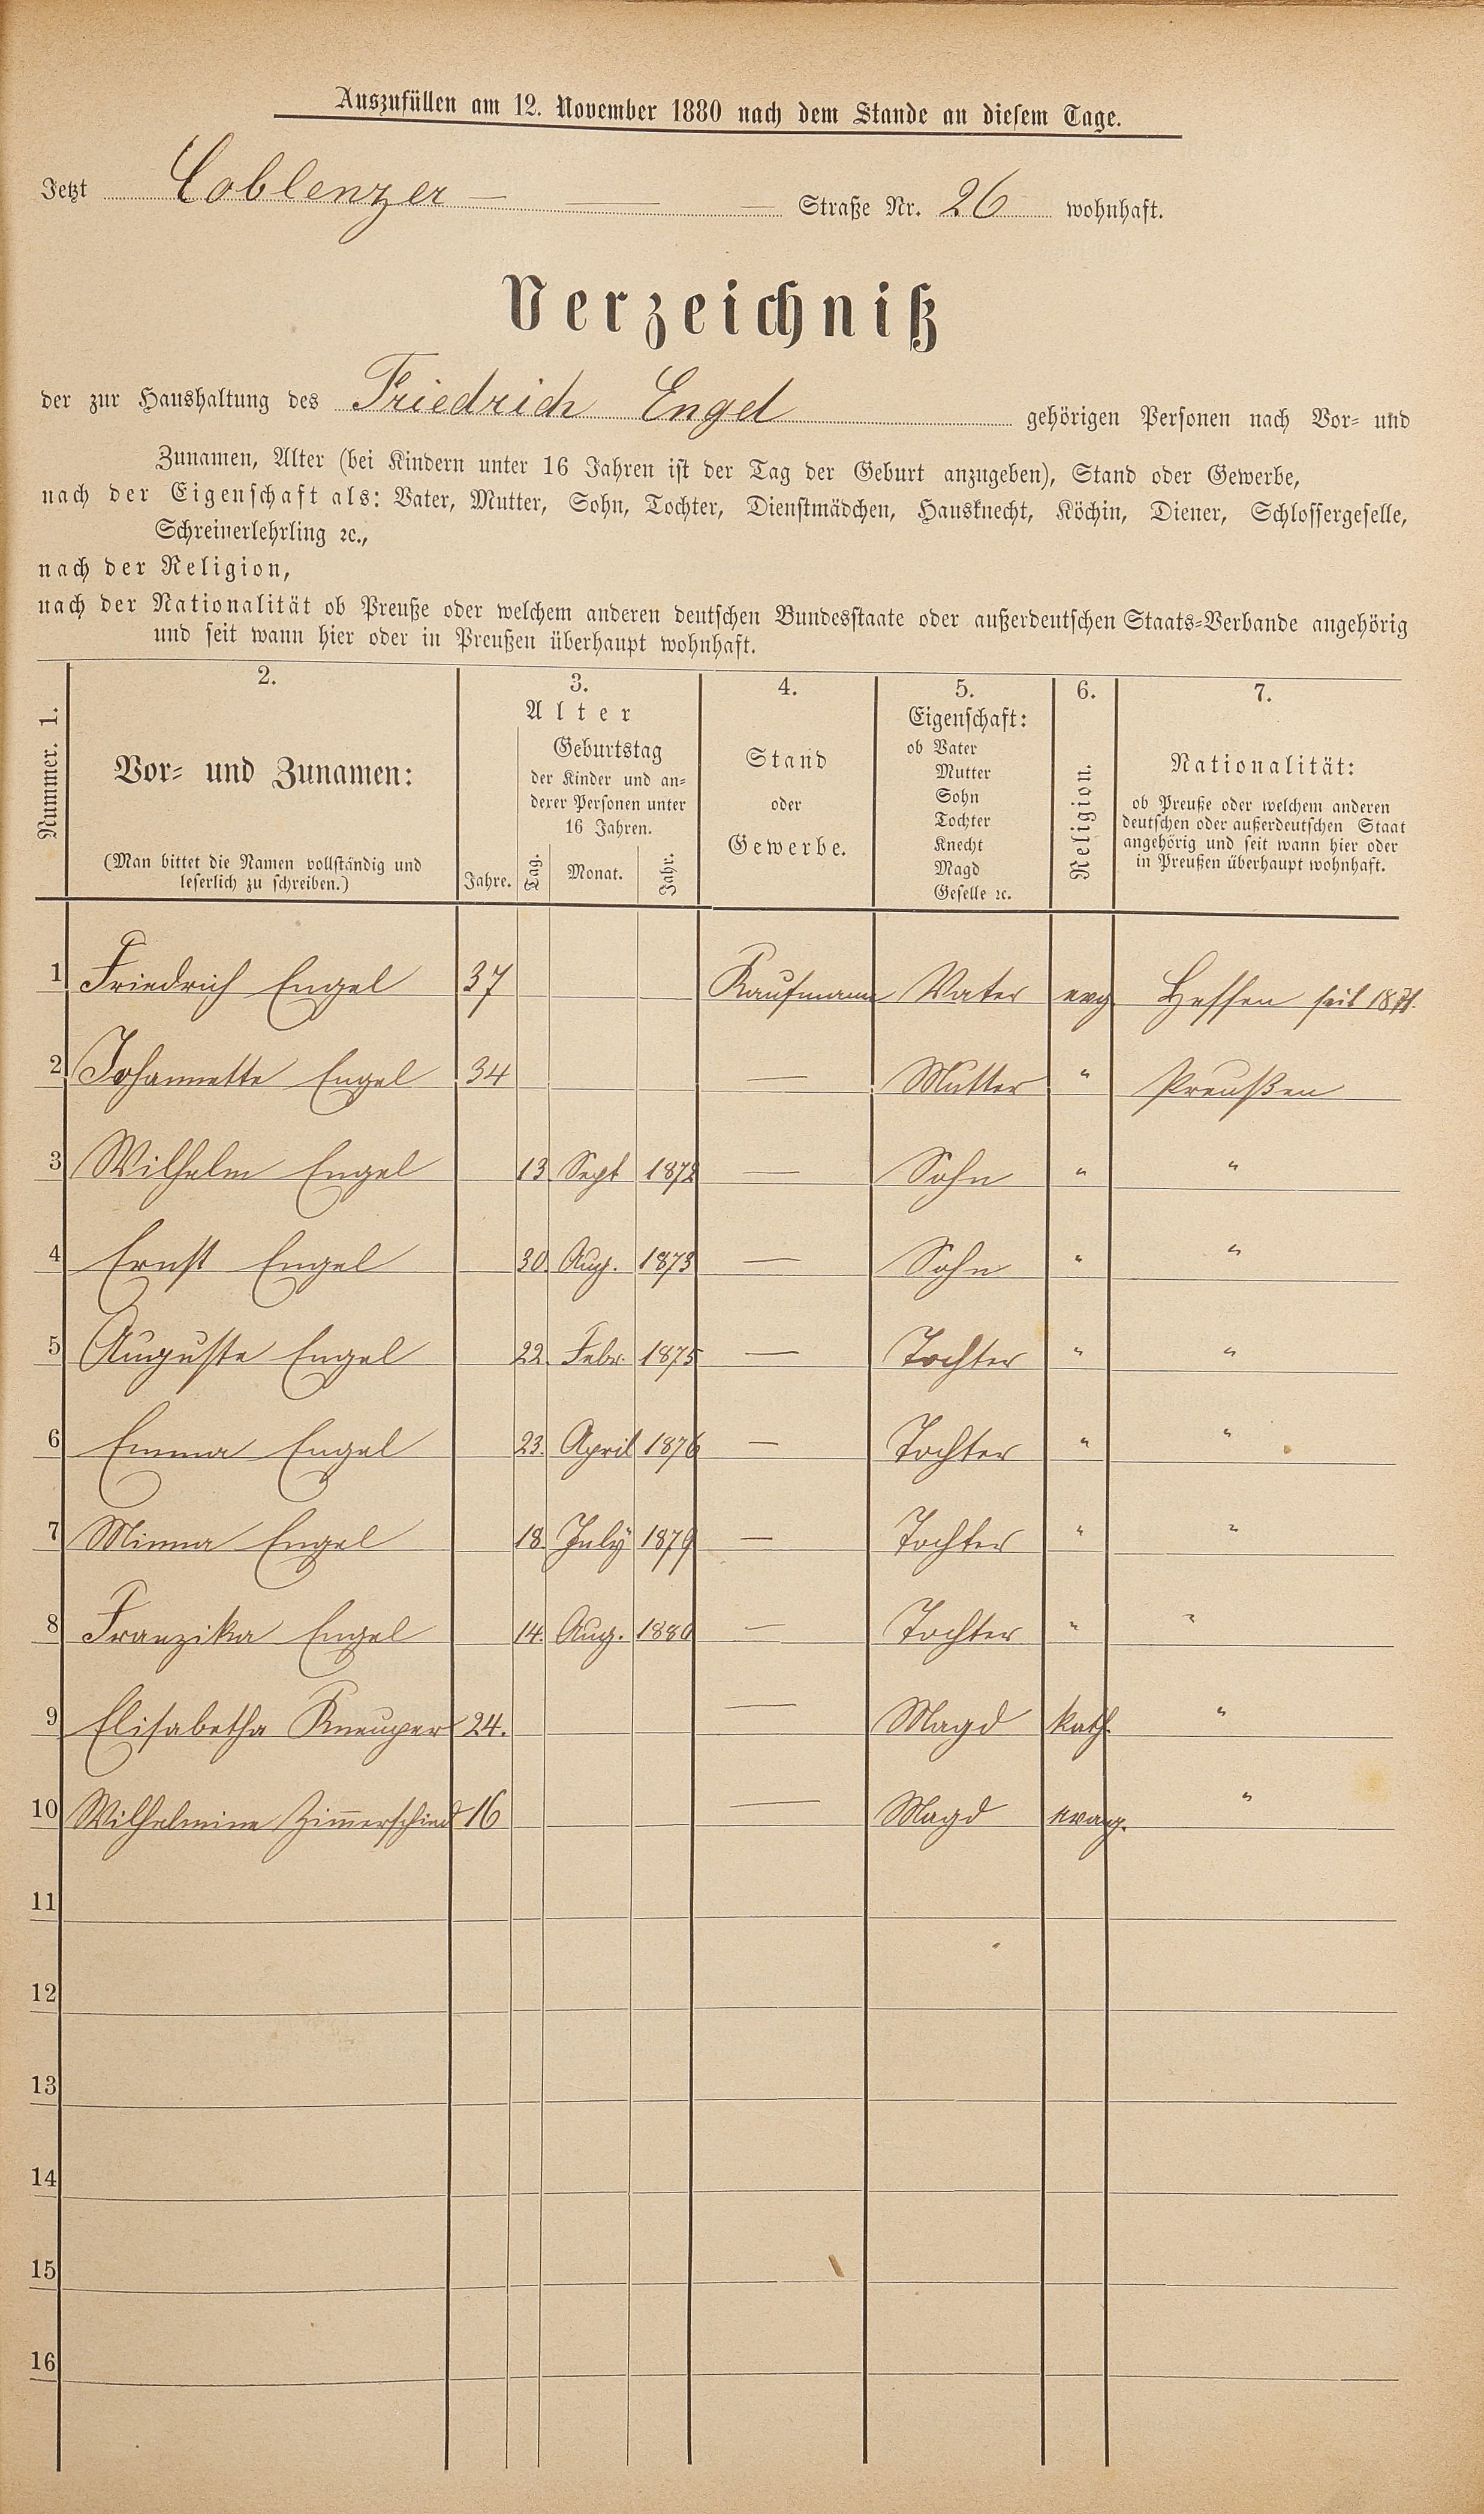 Auszufüllen am 12. November 1880 nach dem Stande an diesem Tage.
Jetzt Coblenzer — — — Straße Nr. 26 wohnhaft.
Verzeichniß
der zur Haushaltung des Friedrich Engel gehörigen Personen nach Vor- und
Zunamen, Alter (bei Kindern unter 16 Jahren ist der Tag der Geburt anzugeben), Stand oder Gewerbe,
nach der Eigenschaft als: Vater, Mutter, Sohn, Tochter, Dienstmädchen, Hausknecht, Köchin, Diener, Schlossergeselle,
Schreinerlehrling ꝛc.,
nach der Religion,
nach der Nationalität ob Preuße oder welchem anderen deutschen Bundesstaate oder außerdeutschen Staats-Verbande angehörig
und seit wann hier oder in Preußen überhaupt wohnhaft.
Nummer. 1.
2.
Vor- und Zunamen:
(Man bittet die Namen vollständig und
leserlich zu schreiben.)
3.
Alter
Jahre.
Geburtstag
der Kinder und an-
derer Personen unter
16 Jahren.
Tag. Monat. Jahr.
4.
Stand
oder
Gewerbe.
5.
Eigenschaft:
ob Vater
Mutter
Sohn
Tochter
Knecht
Magd
Geselle ꝛc.
6.
Religion.
7.
Nationalität:
ob Preuße oder welchem anderen
deutschen oder außerdeutschen Staat
angehörig und seit wann hier oder
in Preußen überhaupt wohnhaft.
1 Friedrich Engel 37 Kaufmann Vater evg. Hessen seit 1871.
2 Johannette Engel 34 — Mutter " Preußen
3 Wilhelm Engel 13 Sept 1872 — Sohn " "
4 Ernst Engel 30. Aug. 1873 — Sohn " "
5 Auguste Engel 22. Febr. 1875 — Tochter " "
6 Emma Engel 23. April 1876 — Tochter " "
7 Minna Engel 18 July 1879 — Tochter " "
8 Franzika Engel 14. Aug. 1880 — Tochter " "
9 Elisabetha Kneuper 24. — Magd kath. "
10 Wilhelmine Zim̅erschied 16 — Magd evang. "
11
12
13
14
15
16